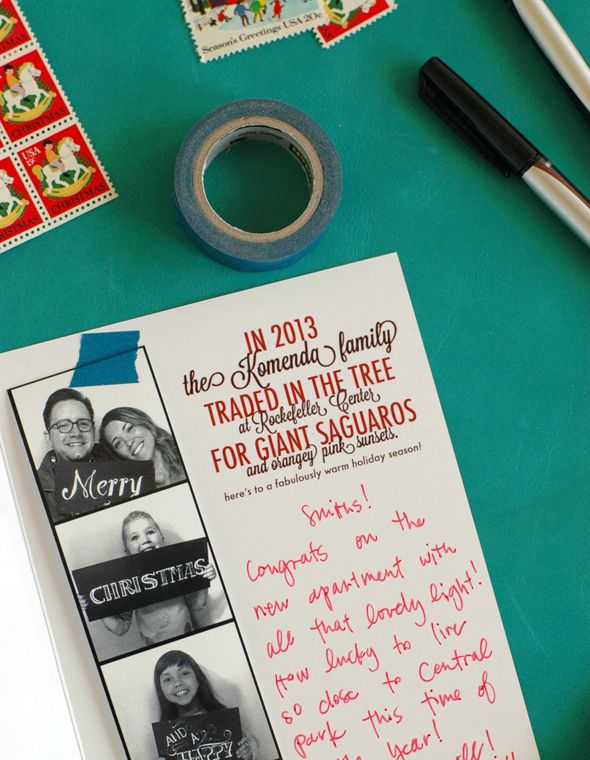 Season's Greetings USA 20c
USA
15c
CHRISTMAS
CHRISTMAS
CHRISTMAS
IN 2013
the Komenda family
TRADED IN THE TREE
at Rockefeller Center
FOR GIANT SAGUAROS
and orangey pink sunsets.
here's to a fabulously warm holiday season!
Merry
CHRISTMAS
AND A
HAPPY
Smiths!
Congrats on the
new apartment with
all that lovely light!
How lucky to live
so close to Central
park this time of
the year!